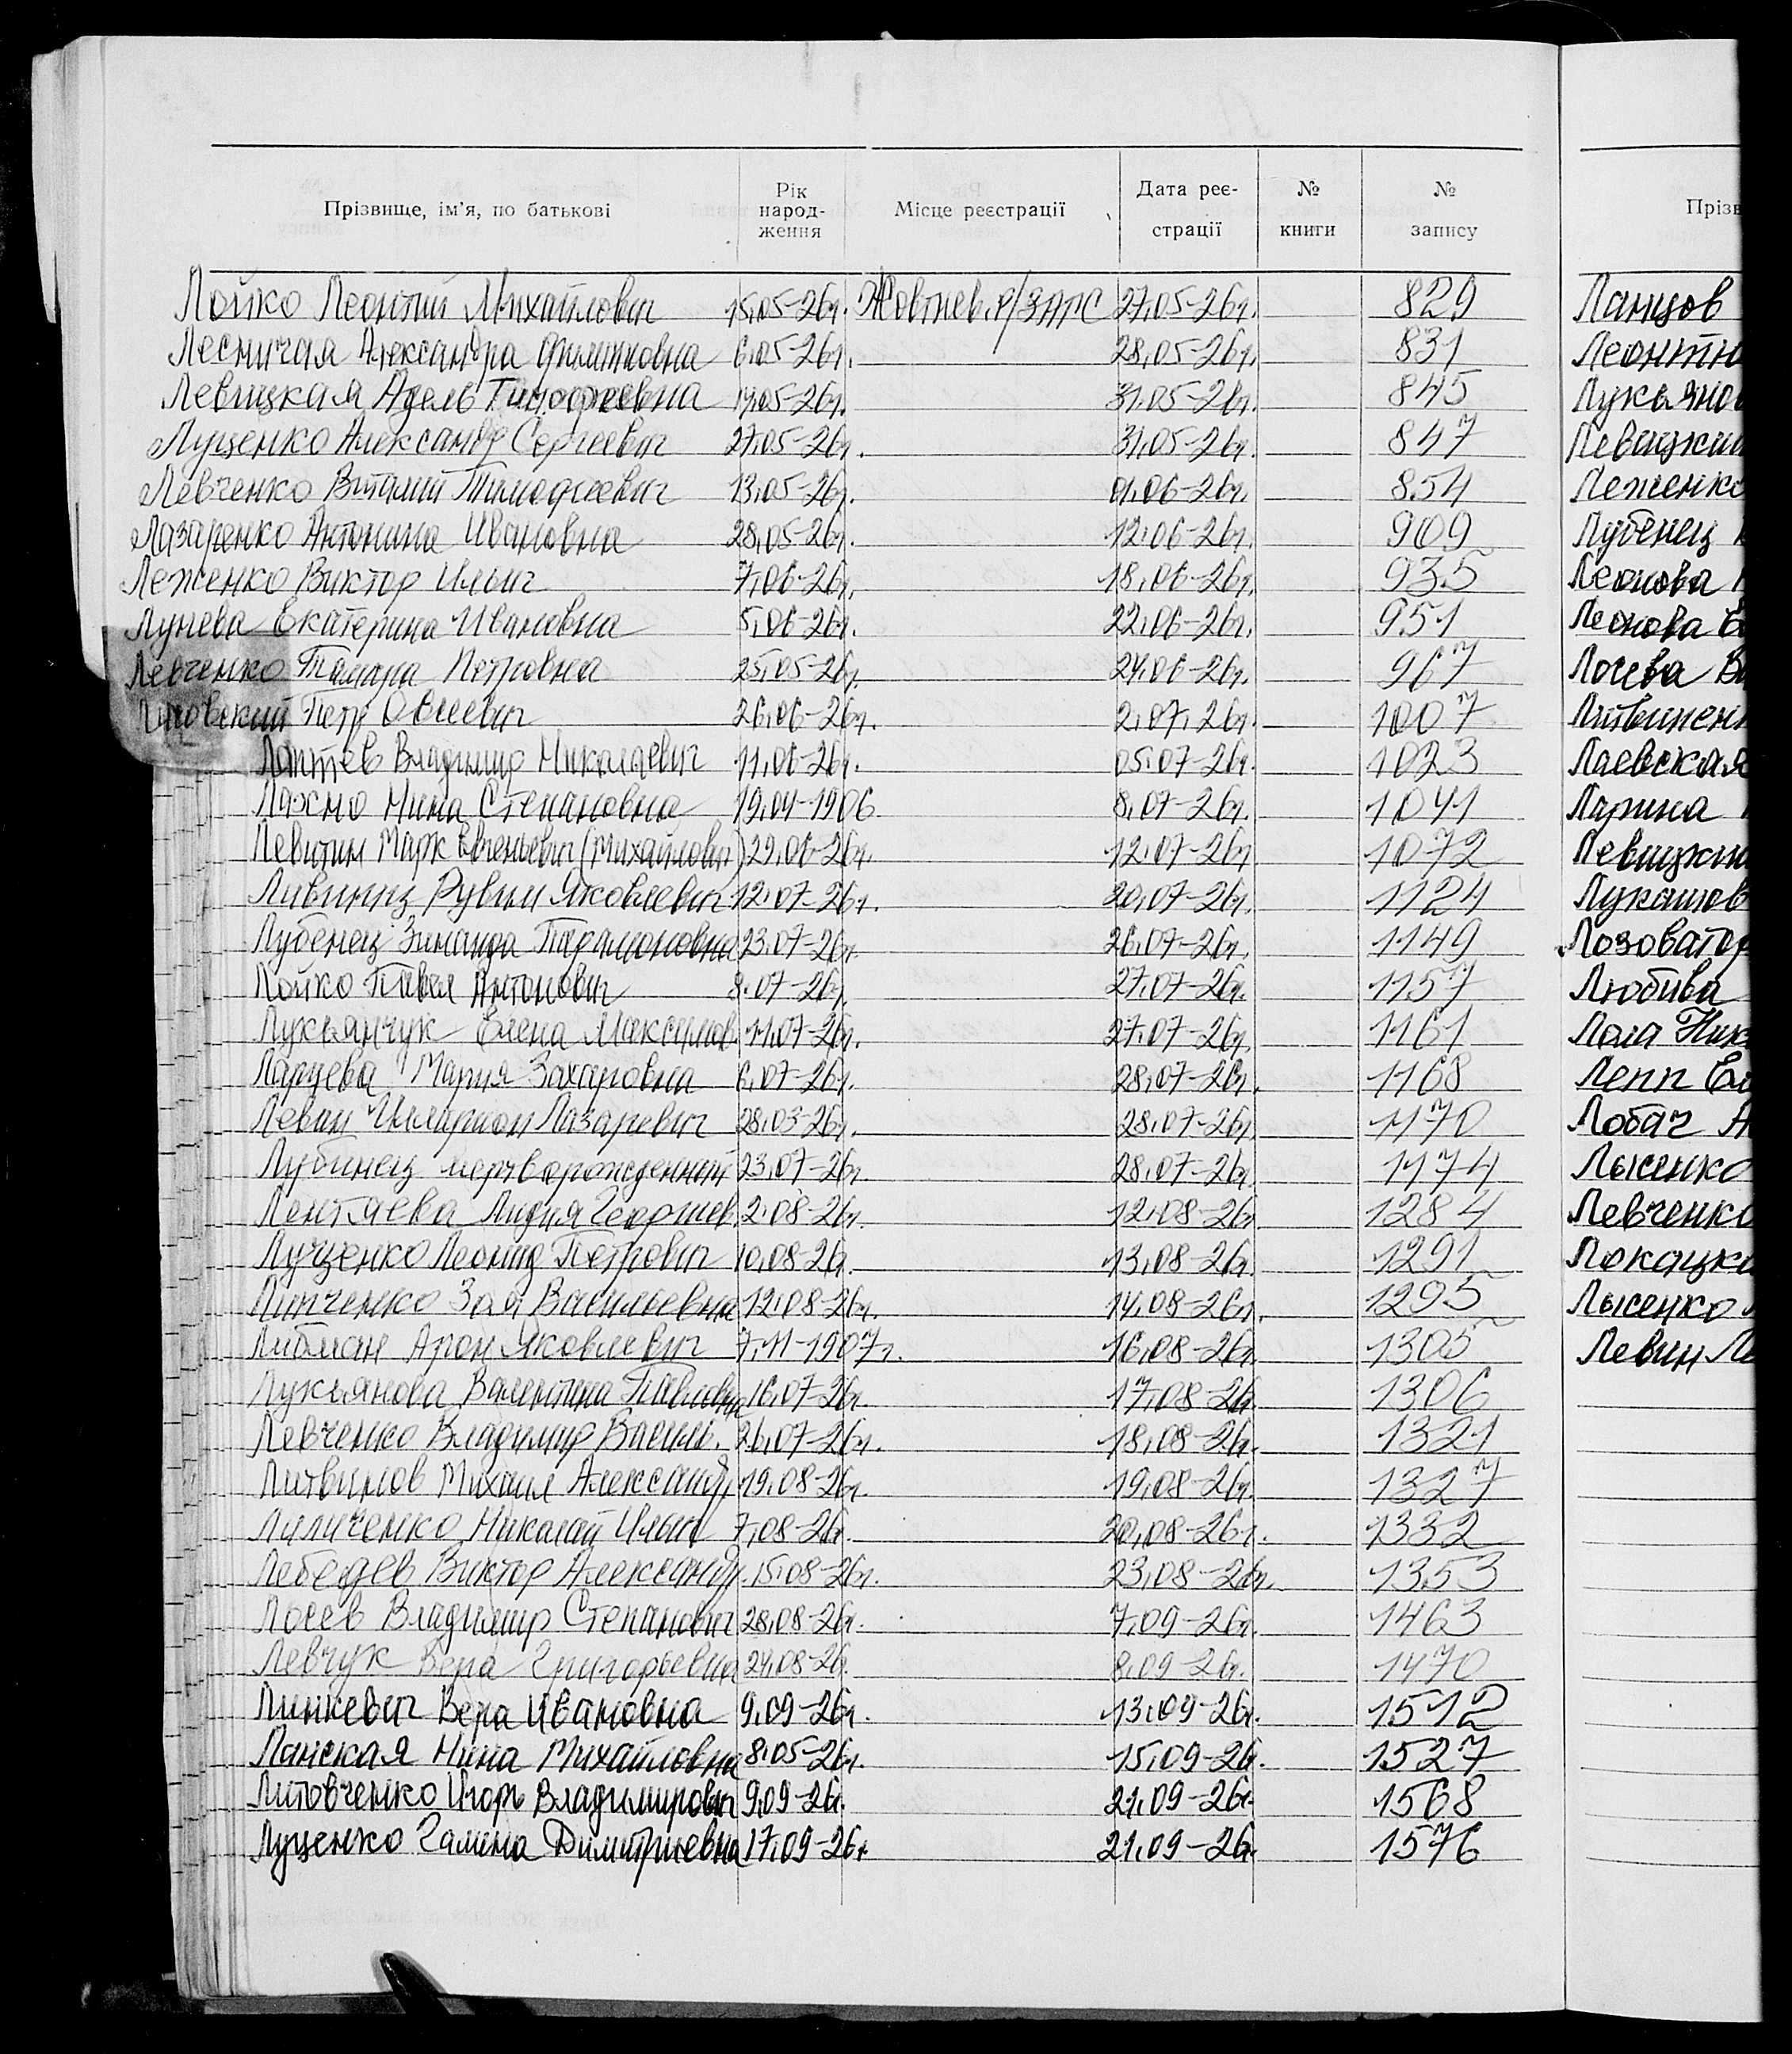 Прізвище, ім'я, по батькові Рік народ- ження Місце реєстрації Дата реє- страції № книги № запису
Лойко Леонтий Михайлович 15,05-26г. Жовтнев. р/ЗАГС 27,05-26г. 829
Лесничая Александра Филипповна 6,05-26г. 28,05-26г. 831
Левицкая Адель Тимофеевна 14,05-26г. 31,05-26г. 845
Луценко Александр Сергеевич 27,05-26г. 31,05-26г. 847
Левченко Виталий Тимофеевич 13,05-26г. 01,06-26г. 854
Лазаренко Антонина Ивановна 28,05-26г. 12,06-26г. 909
Леженко Виктор Ильич 7,06-26г. 18,06-26г. 935
Лунева Екатерина Ивановна 5,06-26г. 22,06-26г. 951
Левченко Тамара Петровна 25,05-26г. 24,06-26г. 967
Петр 26,06-26г. 2,07,26г. 1007
Лаптев Владимир Николаевич 11,06-26г. 05,07-26г. 1023
Лахно Нина Степановна 19,04-1906 8,07-26г. 1041
Левитин Марк Евгеньевич (Михайлович) 29,06-26г. 12,07-26г. 1072
Лившиц Рувим Яковлевич 12,07-26г. 20,07-26г. 1124
Лубенец Зинаида Парамоновна 23,07-26г. 26,07-26г. 1149
Лойко Павел Антонович 8.07-26г. 27,07-26г. 1157
Лукьянчук Елена Максимов. 11,07-26г. 27,07-26г. 1161
Ларцева Мария Захаровна 6,07-26г. 28,07-26г. 1168
Левин Илларион Лазаревич 28,03-26г. 28,07-26г. 1170
Лубинец мертворожденный 23,07-26г. 28,07-26г. 1174
Лентяева Лидия Георгиев. 2,08-26г. 12,08-26г. 1284
Луценко Леонид Петрович 10,08-26г. 13,08-26г. 1291
Линченко Зоя Васильевна 12,08-26г. 14,08-26г. 1295
Либман Арон Яковлевич 7,11-1907г. 16,08-26г. 1305
Лукьянова Валентина Павловна 16,07-26г. 17,08-26г. 1306
Левченко Владимир Василь. 26,07-26г. 18,08-26г. 1321
Литвинов Михаил Александр. 19,08-26г. 19,08-26г. 1327
Лиличенко Николай Ильич 7,08-26г. 20,08-26г. 1332
Лебедев Виктор Александр. 15,08-26г. 23,08-26г. 1353
Лосев Владимир Степанович 28,08-26г. 7,09-26г. 1463
Левчук Вера Григорьевна 24,08-26г. 8,09-26г. 1470
Линкевич Вера Ивановна 9,09-26г. 13,09-26г. 1512
Ланская Нина Михайловна 8,05-26г. 15,09-26г. 1527
Литовченко Игорь Владимирович 9,09-26г. 21,09-26г. 1568
Луценко Галина Димитриевна 17,09-26г. 21,09-26г. 1576
Прізв
Ланцов
Леонтю
Лукьянов
Левицкий
Леженко
Лубенец
Леонова
Леонова
Лосева
Литвиненк
Лаевская
Ларина
Левицкий
Лукашов
Лозоватор
Любива
Лола Ник
Лепп
Лобач
Лысенко
Левченко
Локацк
Лысенко
Левин